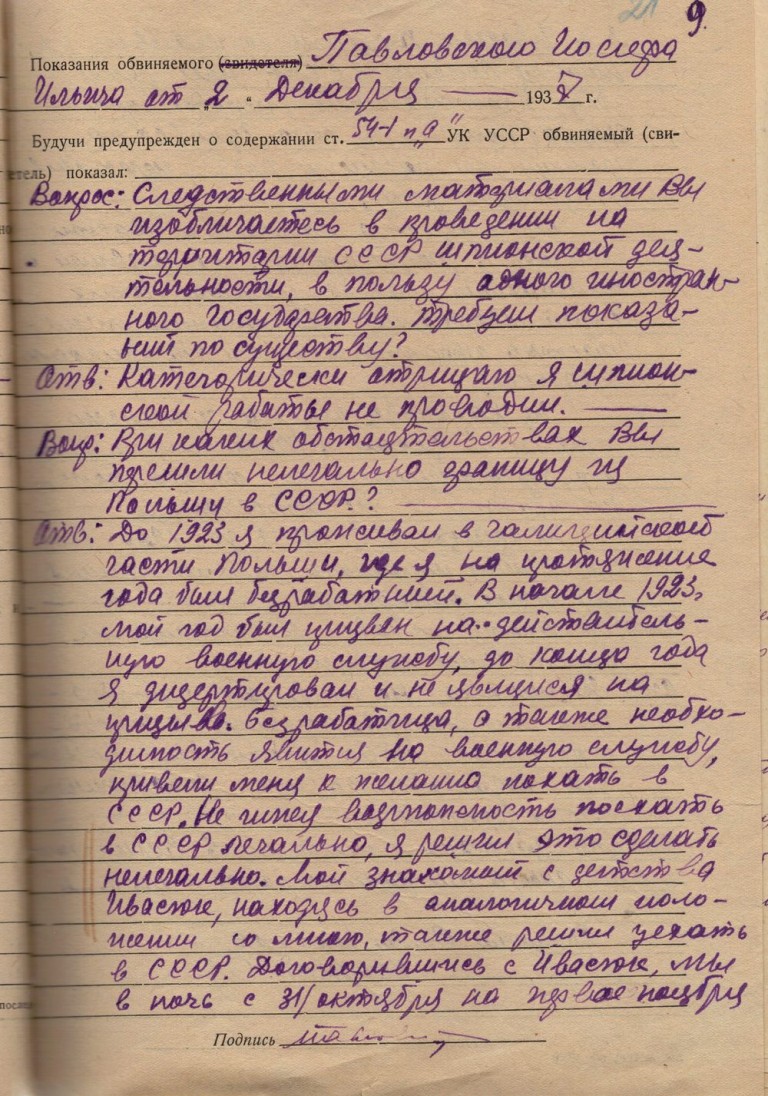 21
9.
Показания обвиняемого (свидетеля) Павловского Иосифа
Ильича от „2“ Декабря 1937 г.
Будучи предупрежден о содержании ст. 54-1 п „а“ УК УССР обвиняемый (сви-
етель) показал:
Вопрос: Следственными материалами Вы
изобличаетесь в проведении на
территории СССР шпионской дея-
тельности, в пользу одного иностран-
ного государства. Требуем показа-
ний по существу?
Отв: Категорически отрицаю я шпион-
ской работы не проводил.
Вопр: При каких обстоятельствах Вы
перешли нелегально границу из
Польши в СССР?
Отв: До 1923 я проживал в галицийской
части Польши, где я на протяжение
года был безработный. В начале 1923г.
мой год был призван на действитель-
ную военную службу, до конца года
я дизертировал и не являлся на
призыв. Безработица, а также необхо-
димость явится на военную службу,
привели меня к желанию поехать в
СССР. Не имея возможность поехать
в СССР легально, я решил это сделать
нелегально. Мой знакомый с детства
Ивасюк, находясь в аналогичном поло-
жении со мною, также решил уехать
в СССР. Договорившись с Ивасюк, мы
в ночь с 31/октября на первое ноября
Подпись